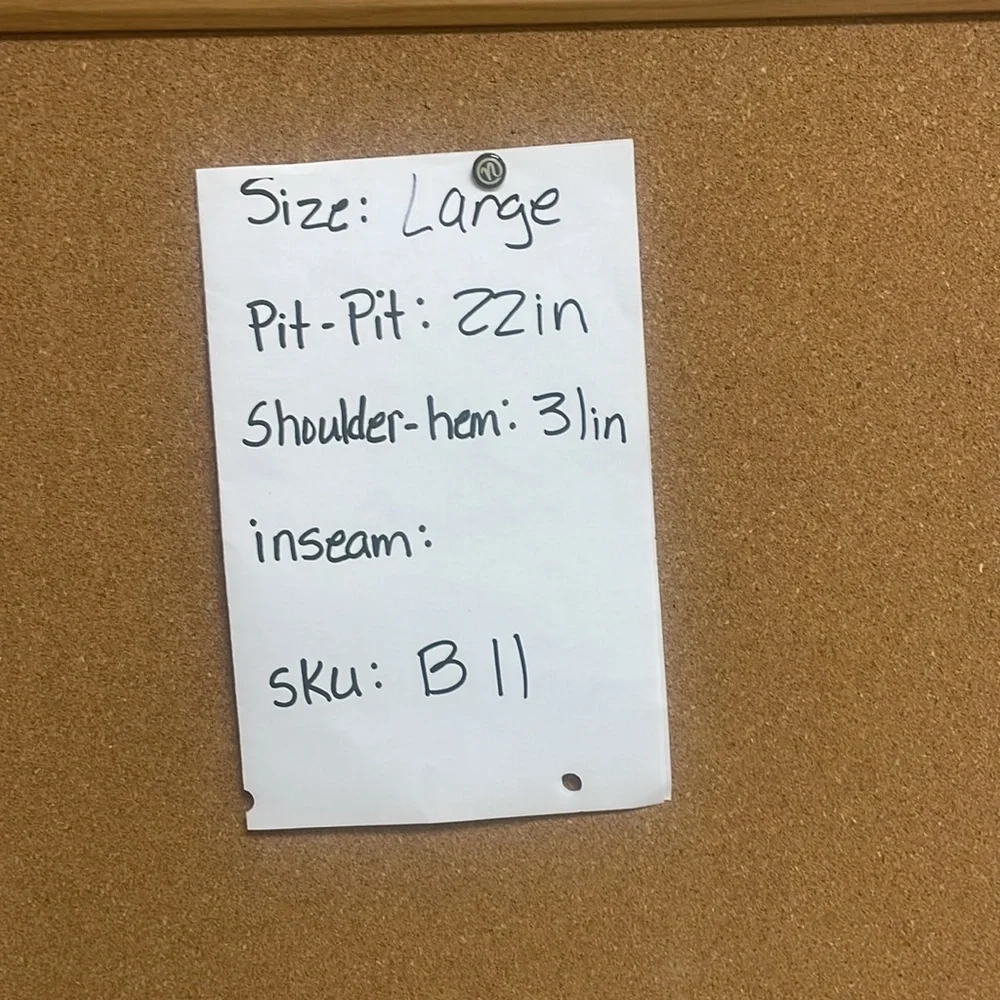 Size: Large
Pit-Pit: 22in
Shoulder-hem: 31in
inseam:
sku: B11